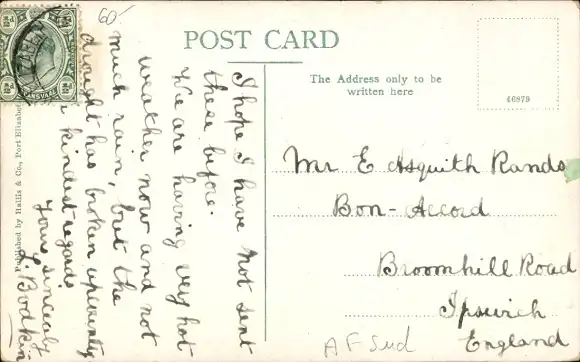 60-
POST CARD
The Address only to be
written here
46879
I hope I have not sent
these before.
We are having very hot
weather now and not
much rain, but the
drought has broken apparently
kindest regards
Yours sincerely
Bodkin
Mr E Asquith Rands
Bon-Accord
Broomhill Road
Ipswich
England
AF Sud
Published by Hallis & Co., Port Elizabeth
½d ½d